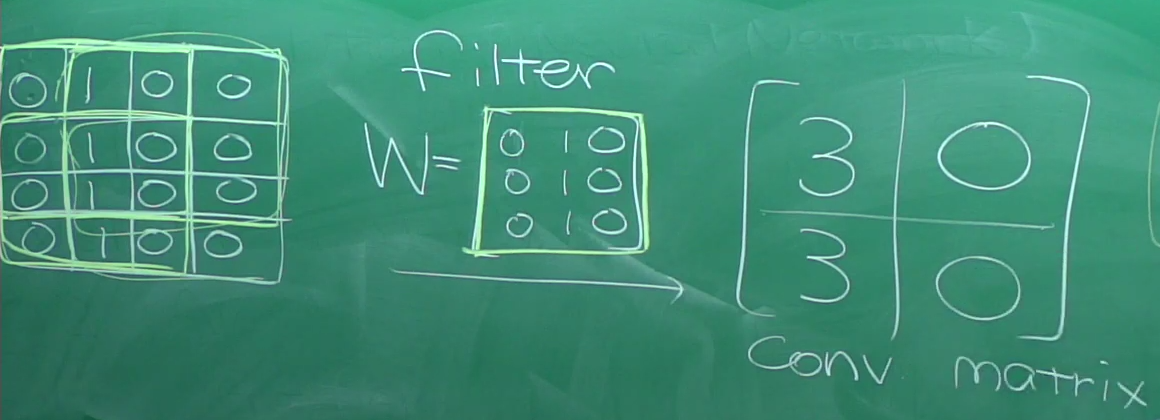 0 1 0 0
0 1 0 0
0 1 0 0
0 1 0 0
filter
W=
0 1 0
0 1 0
0 1 0
3 0
3 0
Conv. matrix